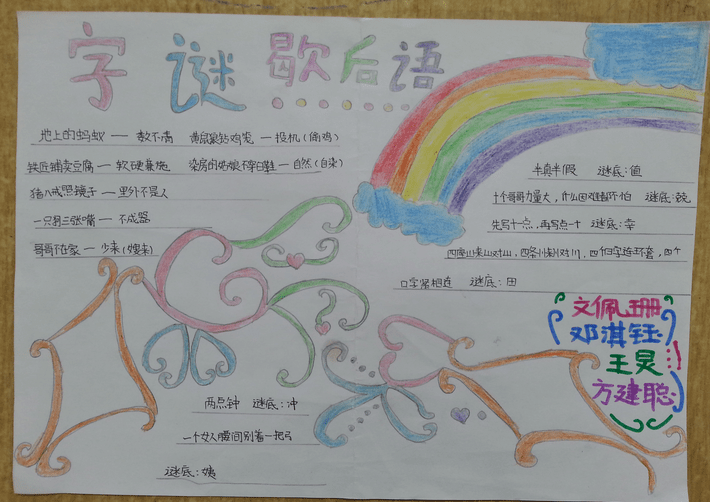 字谜歇后语
地上的蚂蚁 — 数不清
黄鼠狼钻鸡笼 — 投机(偷鸡)
铁匠铺卖豆腐 — 软硬兼施
染房的姑娘不穿白鞋 — 自然(自染)
猪八戒照镜子 — 里外不是人
一只碗三张嘴 — 不成器
哥哥不在家 — 少来(嫂来)
半真半假 谜底:值
十个哥哥力量大,什么困难都不怕 谜底:克
先写十点,再写点十 谜底:幸
四座山,山对山,四条川,川对川,四个日字连环套,四个
口字紧相连 谜底:田
两点钟 谜底:冲
一个女人腰间别着一把弓
谜底:姨
文佩珊
邓淇钰
王昊
方建聪